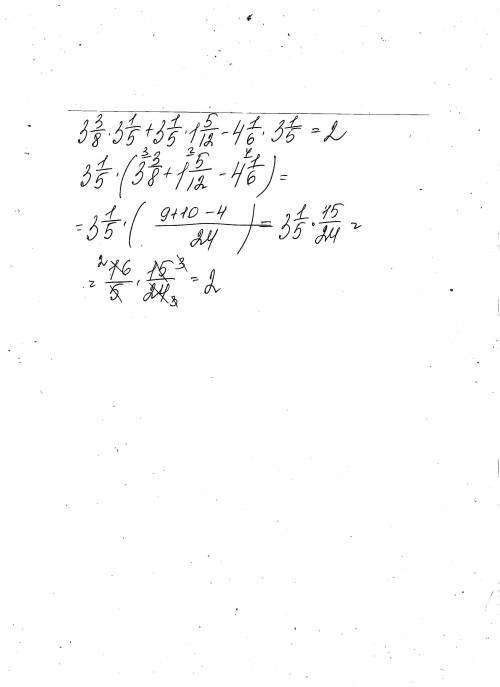 3 3/8 · 3 1/5 + 3 1/5 · 1 5/12 - 4 1/6 · 3 1/5 = 2
3 1/5 · (3 3/8 ³ + 1 5/12 ² - 4 1/6 ⁴) =
= 3 1/5 · ((9+10-4)/24) = 3 1/5 · 15/24 =
= 16/5 ² · 15/24 ³ ₃ = 2